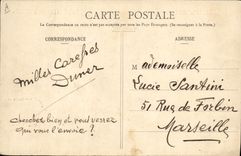 CARTE POSTALE
La Correspondance au recto n'est pas acceptée par tous les Pays Étrangers. (Se renseigner à la Poste.)
CORRESPONDANCE
ADRESSE
Milles Caresses
Duner
cherchez bien et vous verrez
qui vous l'envoie ?
Mademoiselle
Lucie Santini
51 Rue de Forbin
Marseille